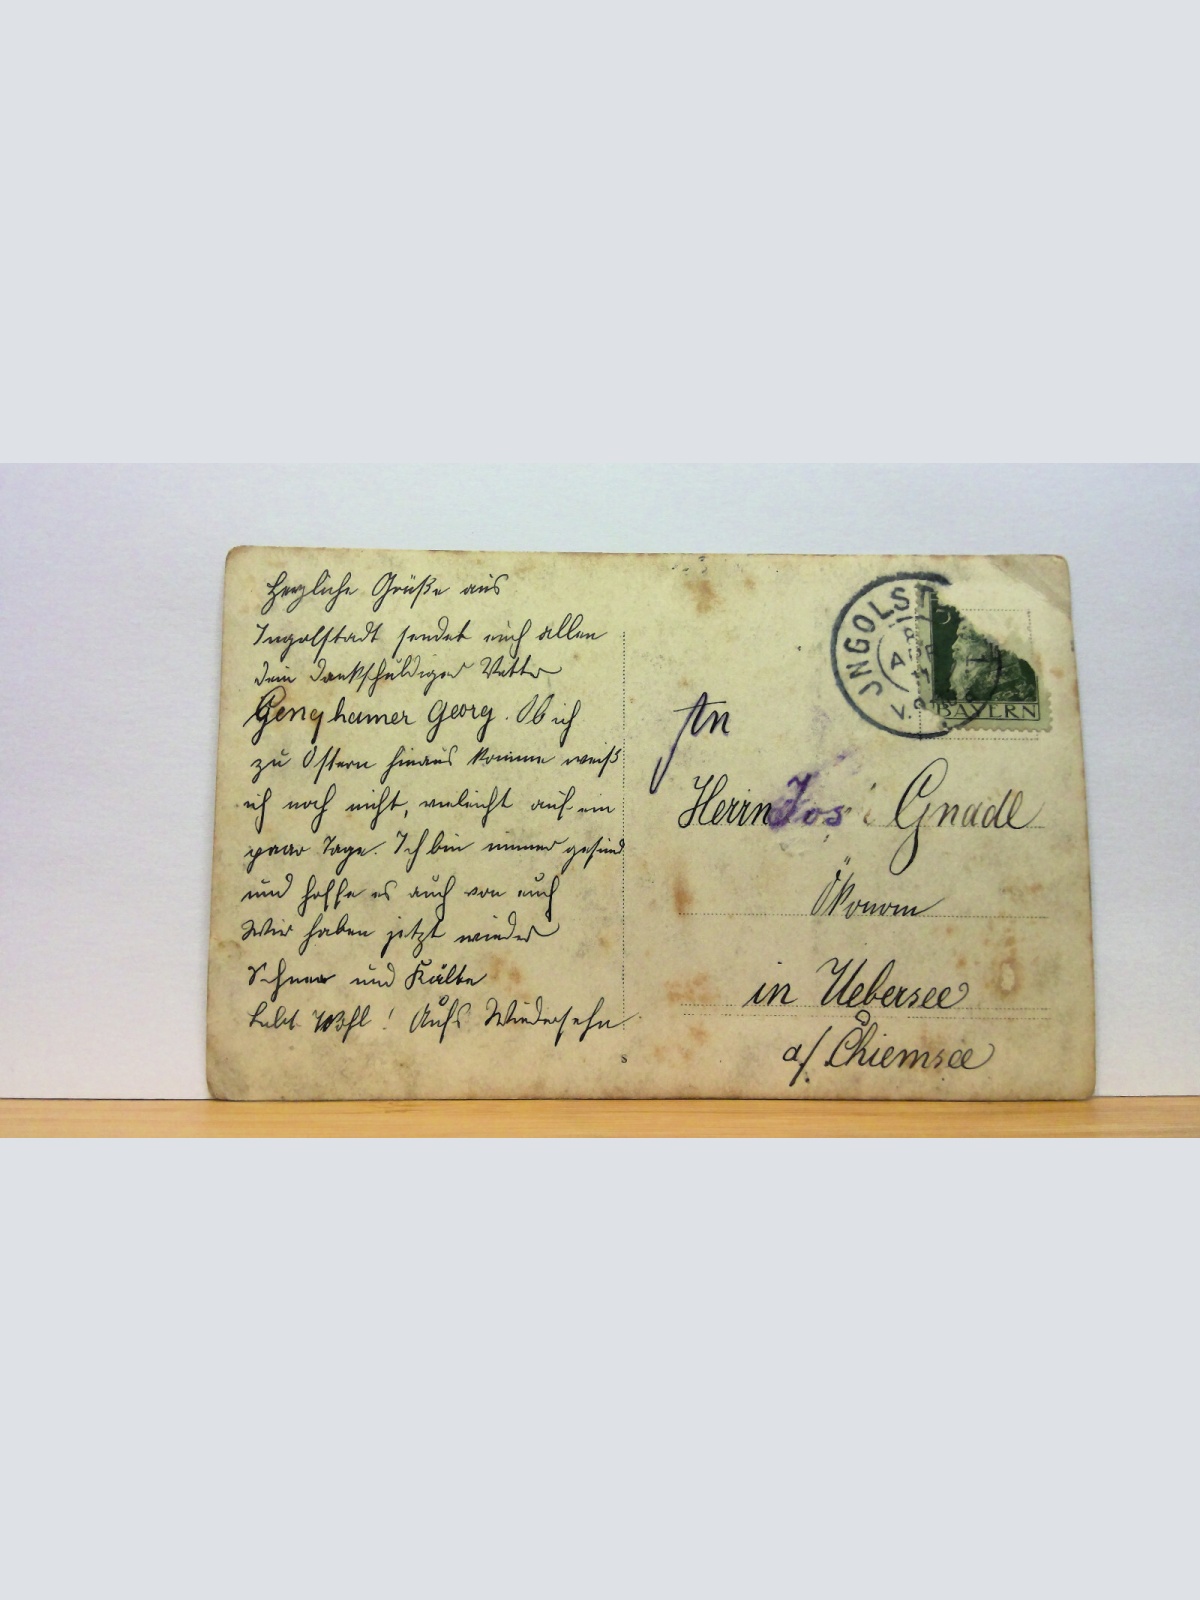 Herzliche Grüße aus
Ingolstadt sendet euch allen
dein dankschuldiger Vetter
Genghamer Georg. Ob ich
zu Ostern hinaus komme weiß
ich noch nicht, vieleicht auf ein
paar Tage. Ich bin immer gesund
und hoffe es auch von euch
Wir haben jetzt wieder
Schnee und Kälte
Lebt Wohl! Aufs Wiedersehn
JNGOLST
BAYERN
An
Herrn Jos Gnadl
Ökonom
in Uebersee
a/ Chiemsee